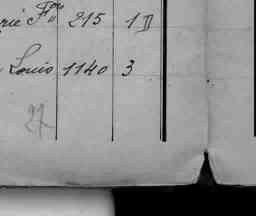 rie Fçois 215 1 D
Louis 1140 3
27